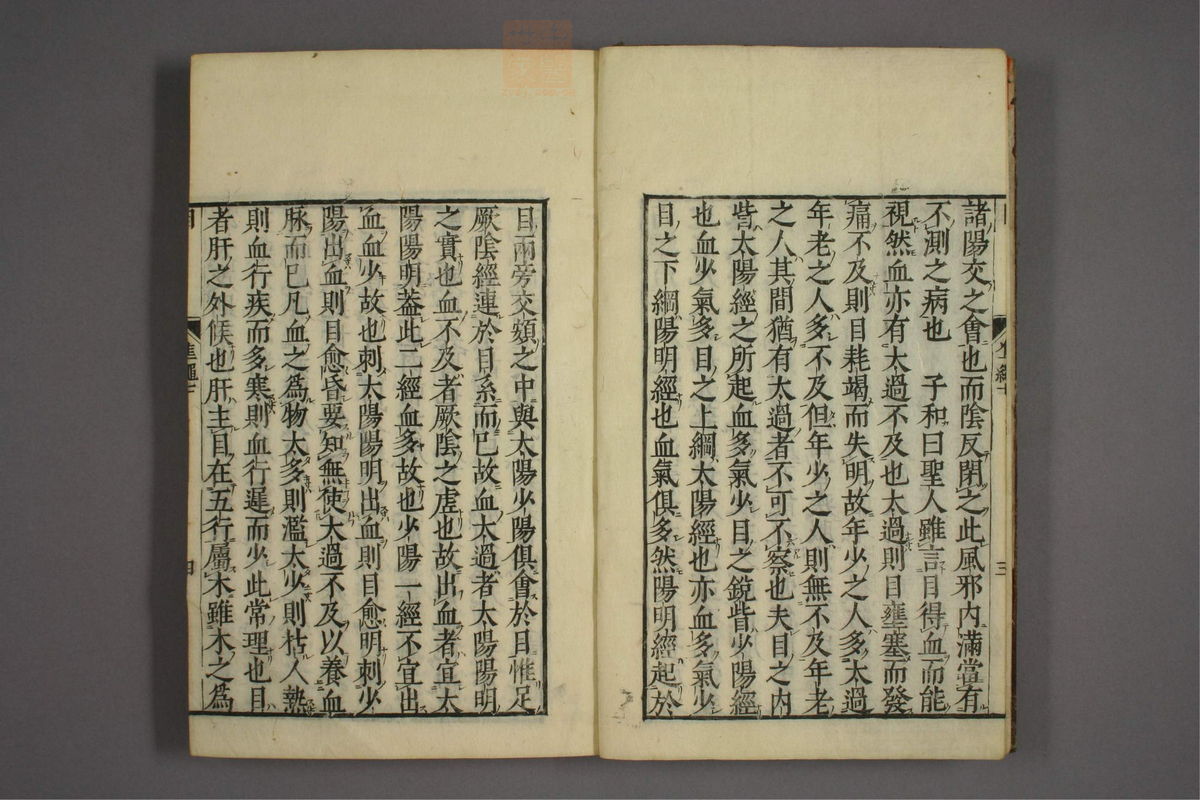 諸陽交之會也而陰反閉之此風邪内滿當有
不測之病也　子和曰聖人雖言目得血而能
視然血亦有太過不及也太過則目壅塞而發
痛不及則目耗竭而失明故年少之人多太過
年老之人多不及但年少之人則無不及年老
之人其間猶有太過者不可不察也夫目之内
眥太陽經之所起血多氣少目之銳眥少陽經
也血少氣多目之上綱太陽經也亦血多氣少
目之下綱陽明經也血氣俱多然陽明經起於
三
目兩旁交頞之中與太陽少陽俱會於目惟足
厥陰經連於目系而已故血太過者太陽陽明
之實也血不及者厥陰之虛也故出血者宜太
陽陽明蓋此二經血多故也少陽一經不宜出
血血少故也刺太陽陽明出血則目愈明刺少
陽出血則目愈昏要知無使太過不及以養血
脉而已凡血之爲物太多則濫太少則枯人熱
則血行疾而多寒則血行遲而少此常理也目
者肝之外候也肝主目在五行屬木雖木之爲